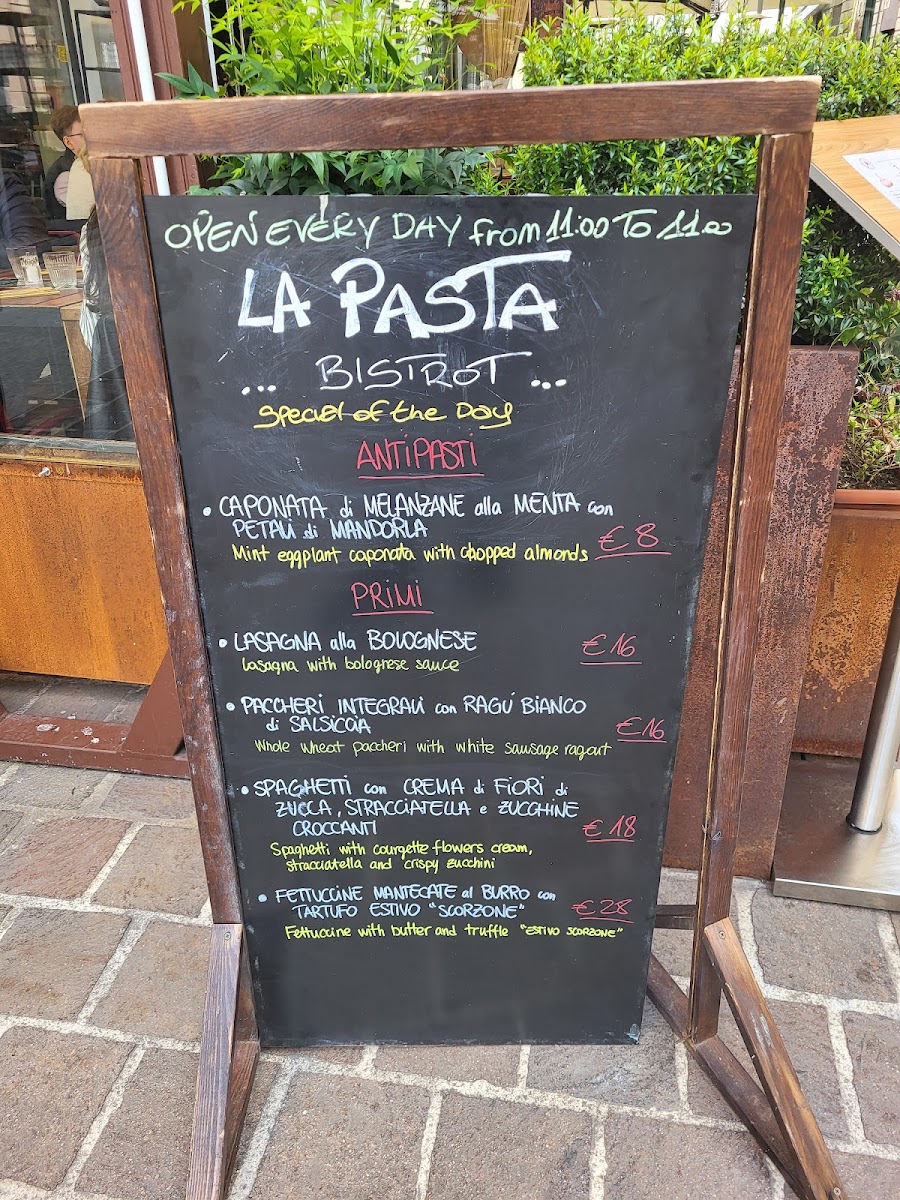 OPEN EVERY DAY from 11:00 TO 11:00
LA PASTA
... BISTROT ...
Special of the Day
ANTIPASTI
• CAPONATA di MELANZANE alla MENTA con
PETALI di MANDORLA
Mint eggplant caponata with chopped almonds € 8
PRIMI
• LASAGNA alla BOLOGNESE € 16
Lasagna with bolognese sauce
• PACCHERI INTEGRALI con RAGÚ BIANCO
di SALSICCIA € 16
Whole wheat paccheri with white sausage ragout
• SPAGHETTI con CREMA di FIORI di
ZUCCA, STRACCIATELLA e ZUCCHINE
CROCCANTI € 18
Spaghetti with courgette flowers cream,
stracciatella and crispy zucchini
• FETTUCCINE MANTECATE al BURRO con
TARTUFO ESTIVO "SCORZONE" € 28
Fettuccine with butter and truffle "ESTIVO SCORZONE"